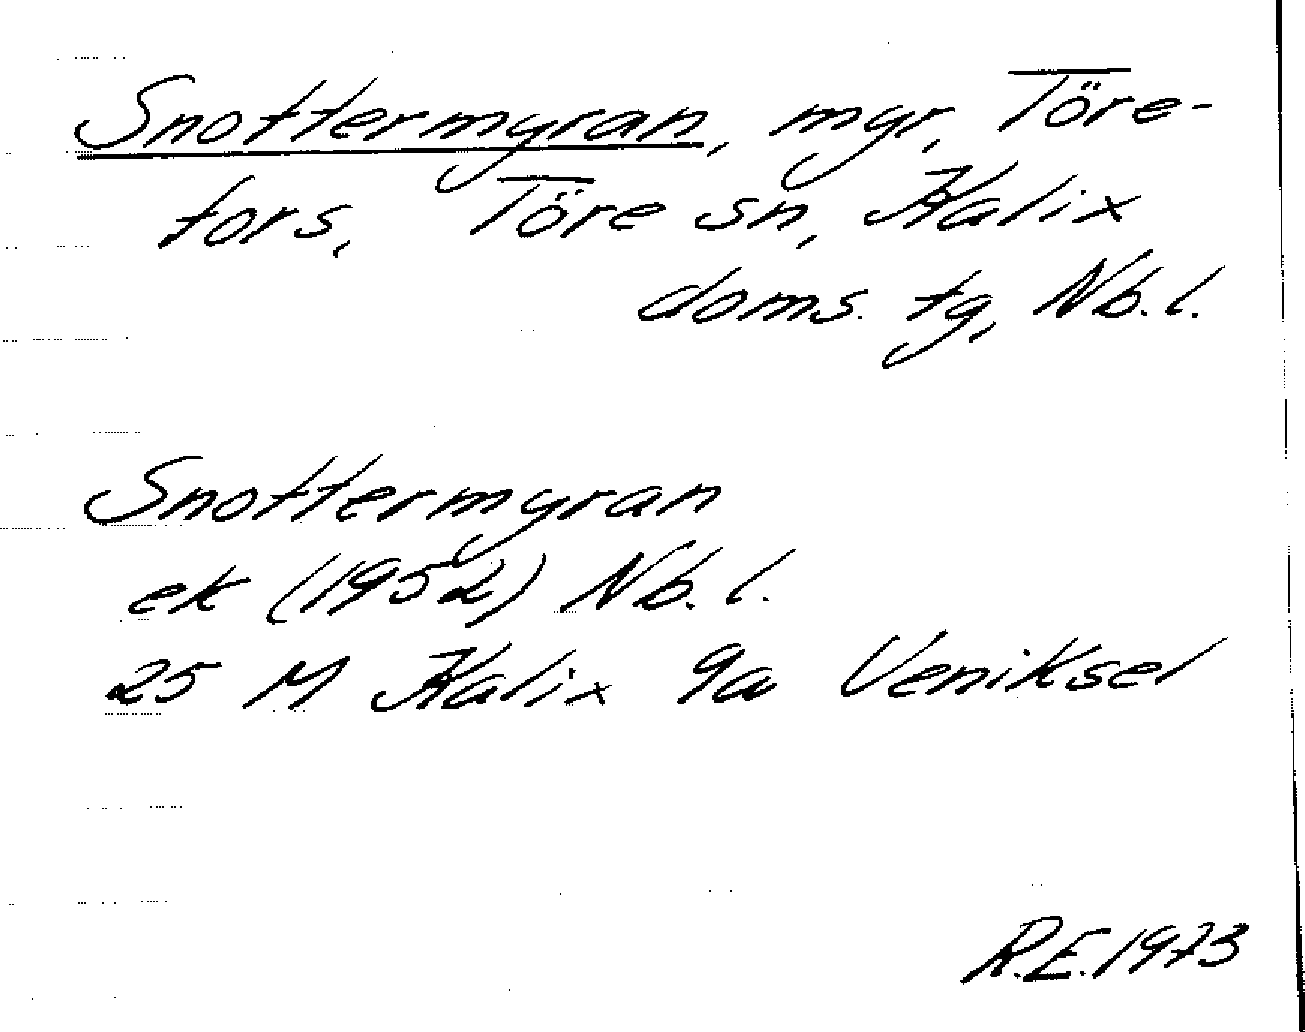 Snottermyran, myr, Töre-
fors, Töre sn, Kalix
doms. tg, Nb.l.
Snottermyran
ek (1952) Nb.l.
25 M Kalix 9a Veniksel
R.E. 1973